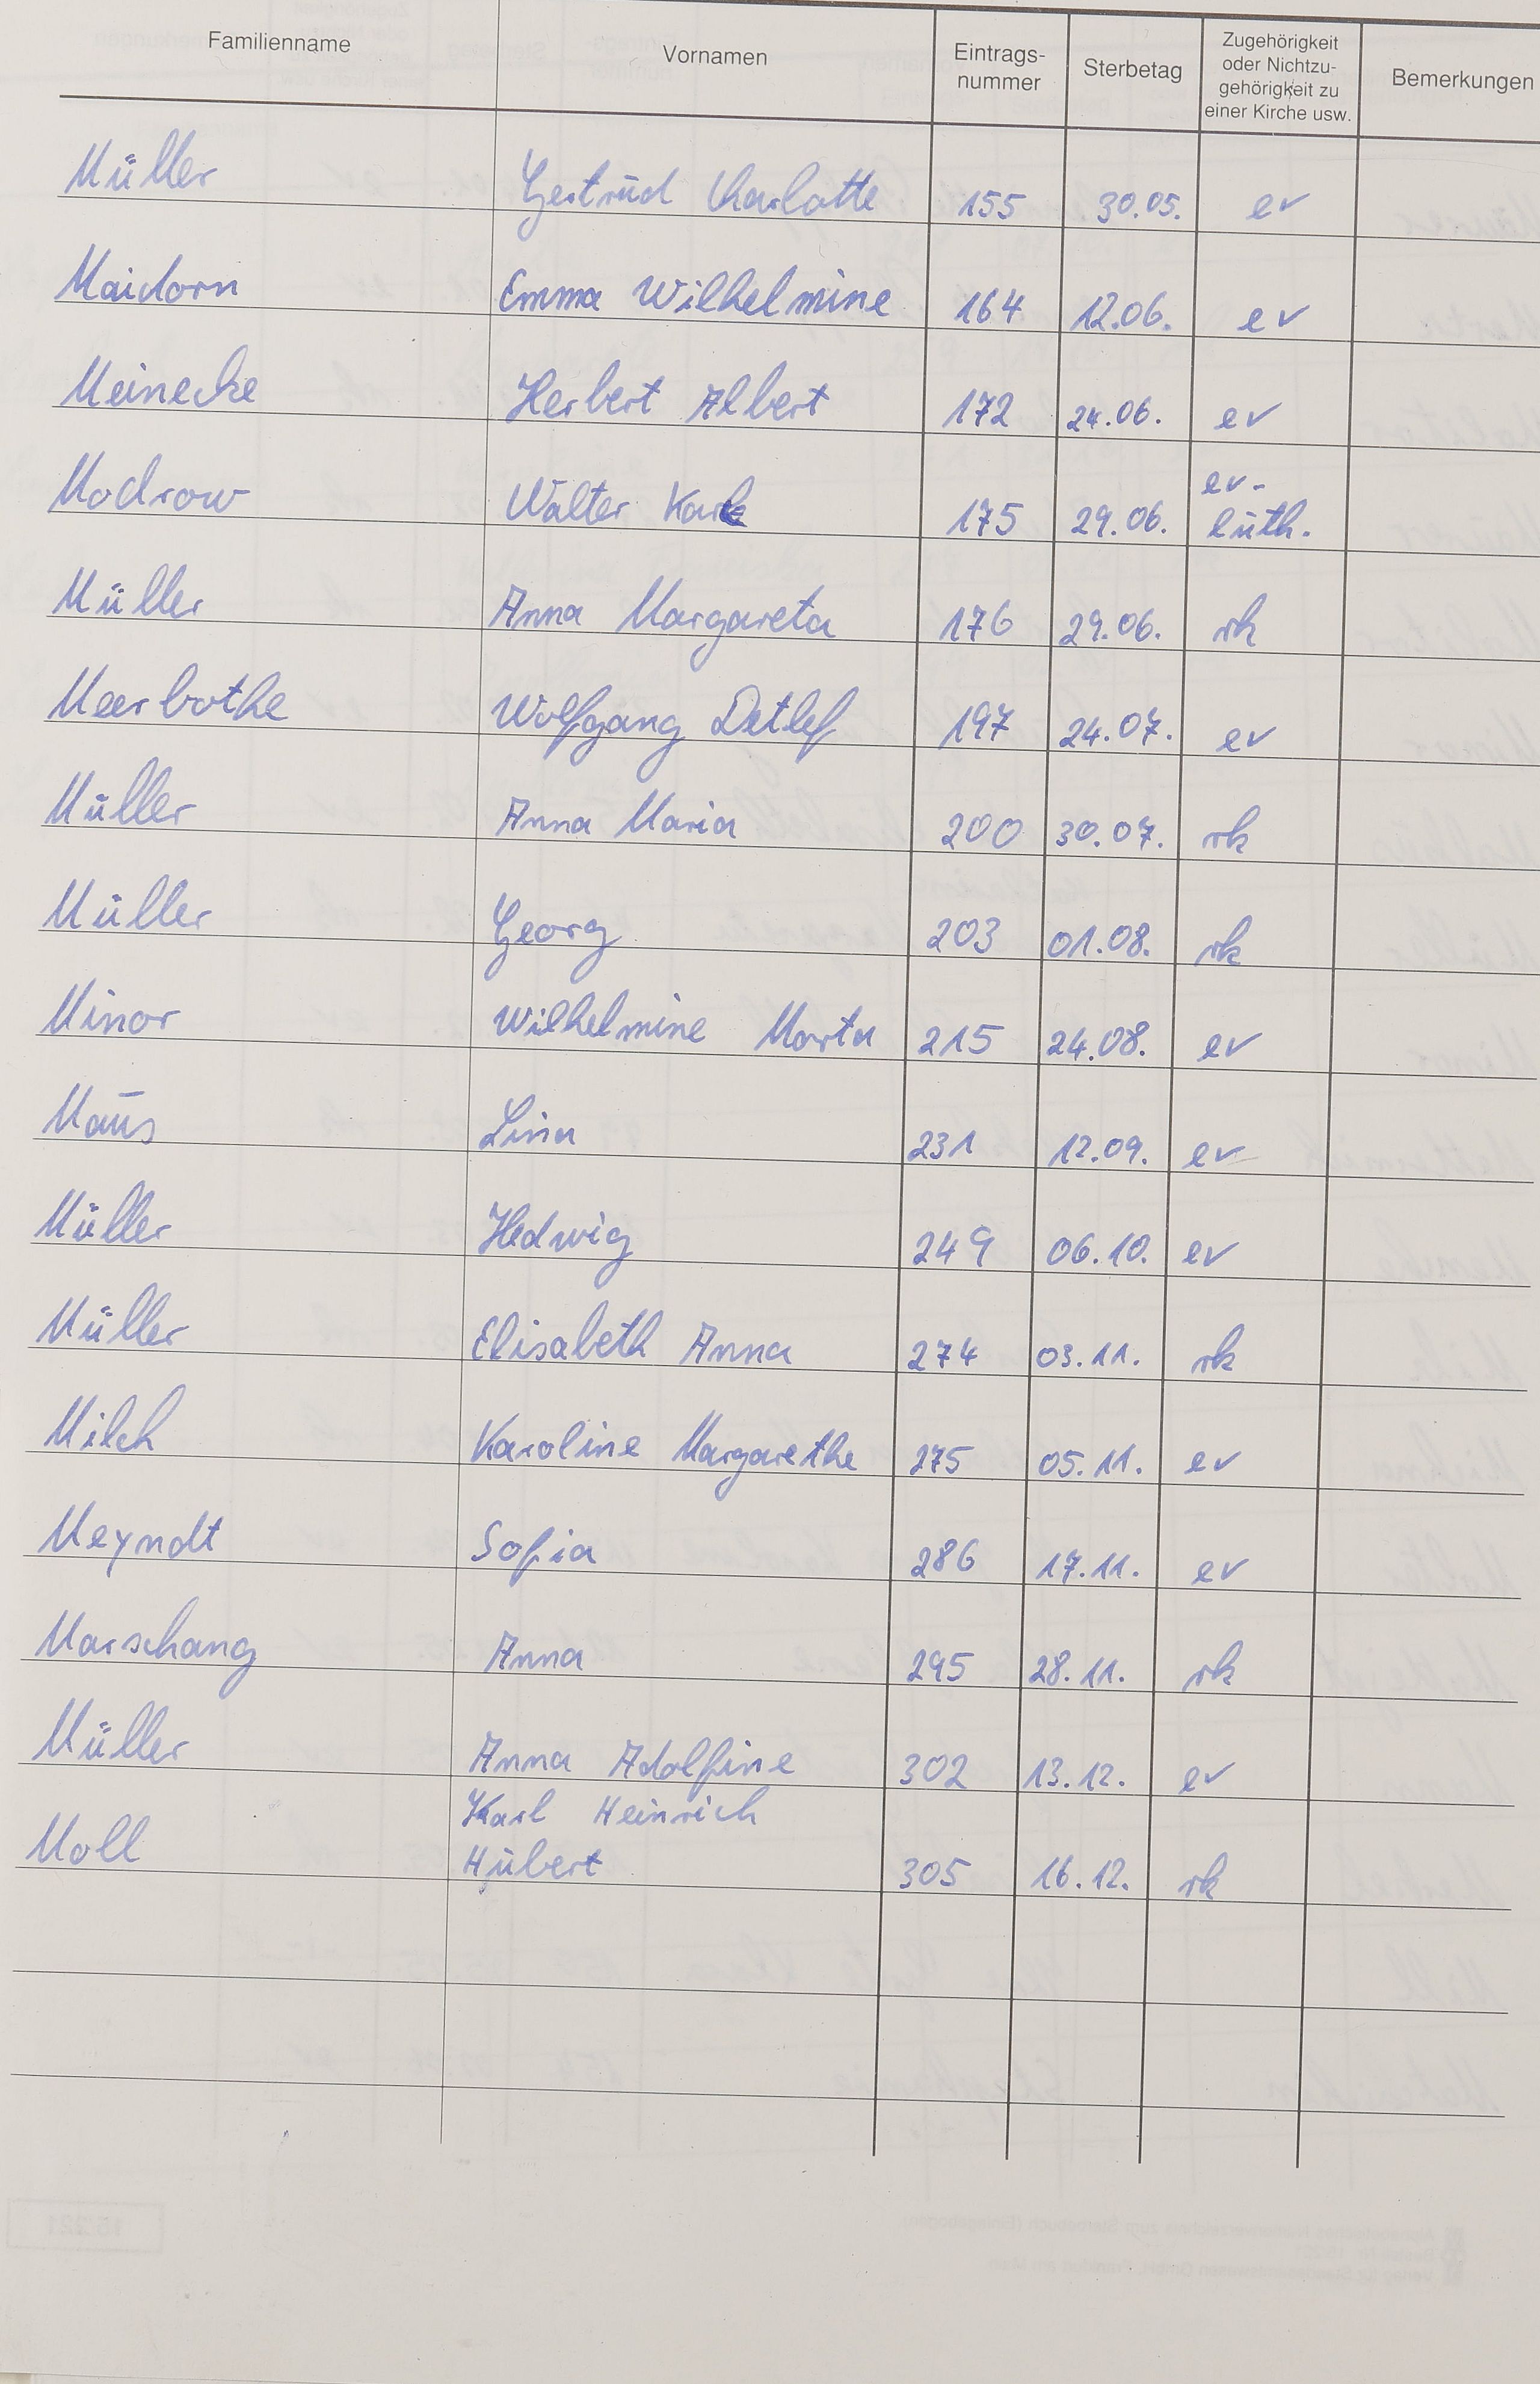 Familienname Vornamen Eintrags-nummer Sterbetag Zugehörigkeit oder Nichtzu-gehörigkeit zu einer Kirche usw. Bemerkungen
Müller Gertrud Charlotte 155 30.05. ev
Maidorn Emma Wilhelmine 164 12.06. ev
Meinecke Herbert Albert 172 24.06. ev
Modrow Walter Karl 175 29.06. ev-luth.
Müller Anna Margareta 176 29.06. rk
Meerbothe Wolfgang Detlef 197 24.07. ev
Müller Anna Maria 200 30.07. rk
Müller Georg 203 01.08. rk
Minor Wilhelmine Marta 215 24.08. ev
Maus Lina 231 12.09. ev
Müller Hedwig 249 06.10. ev
Müller Elisabeth Anna 274 03.11. rk
Milch Karoline Margarethe 275 05.11. ev
Meyndt Sofia 286 17.11. ev
Marschang Anna 295 28.11. rk
Müller Anna Adolfine 302 13.12. ev
Karl Heinrich
Moll Hubert 305 16.12. rk